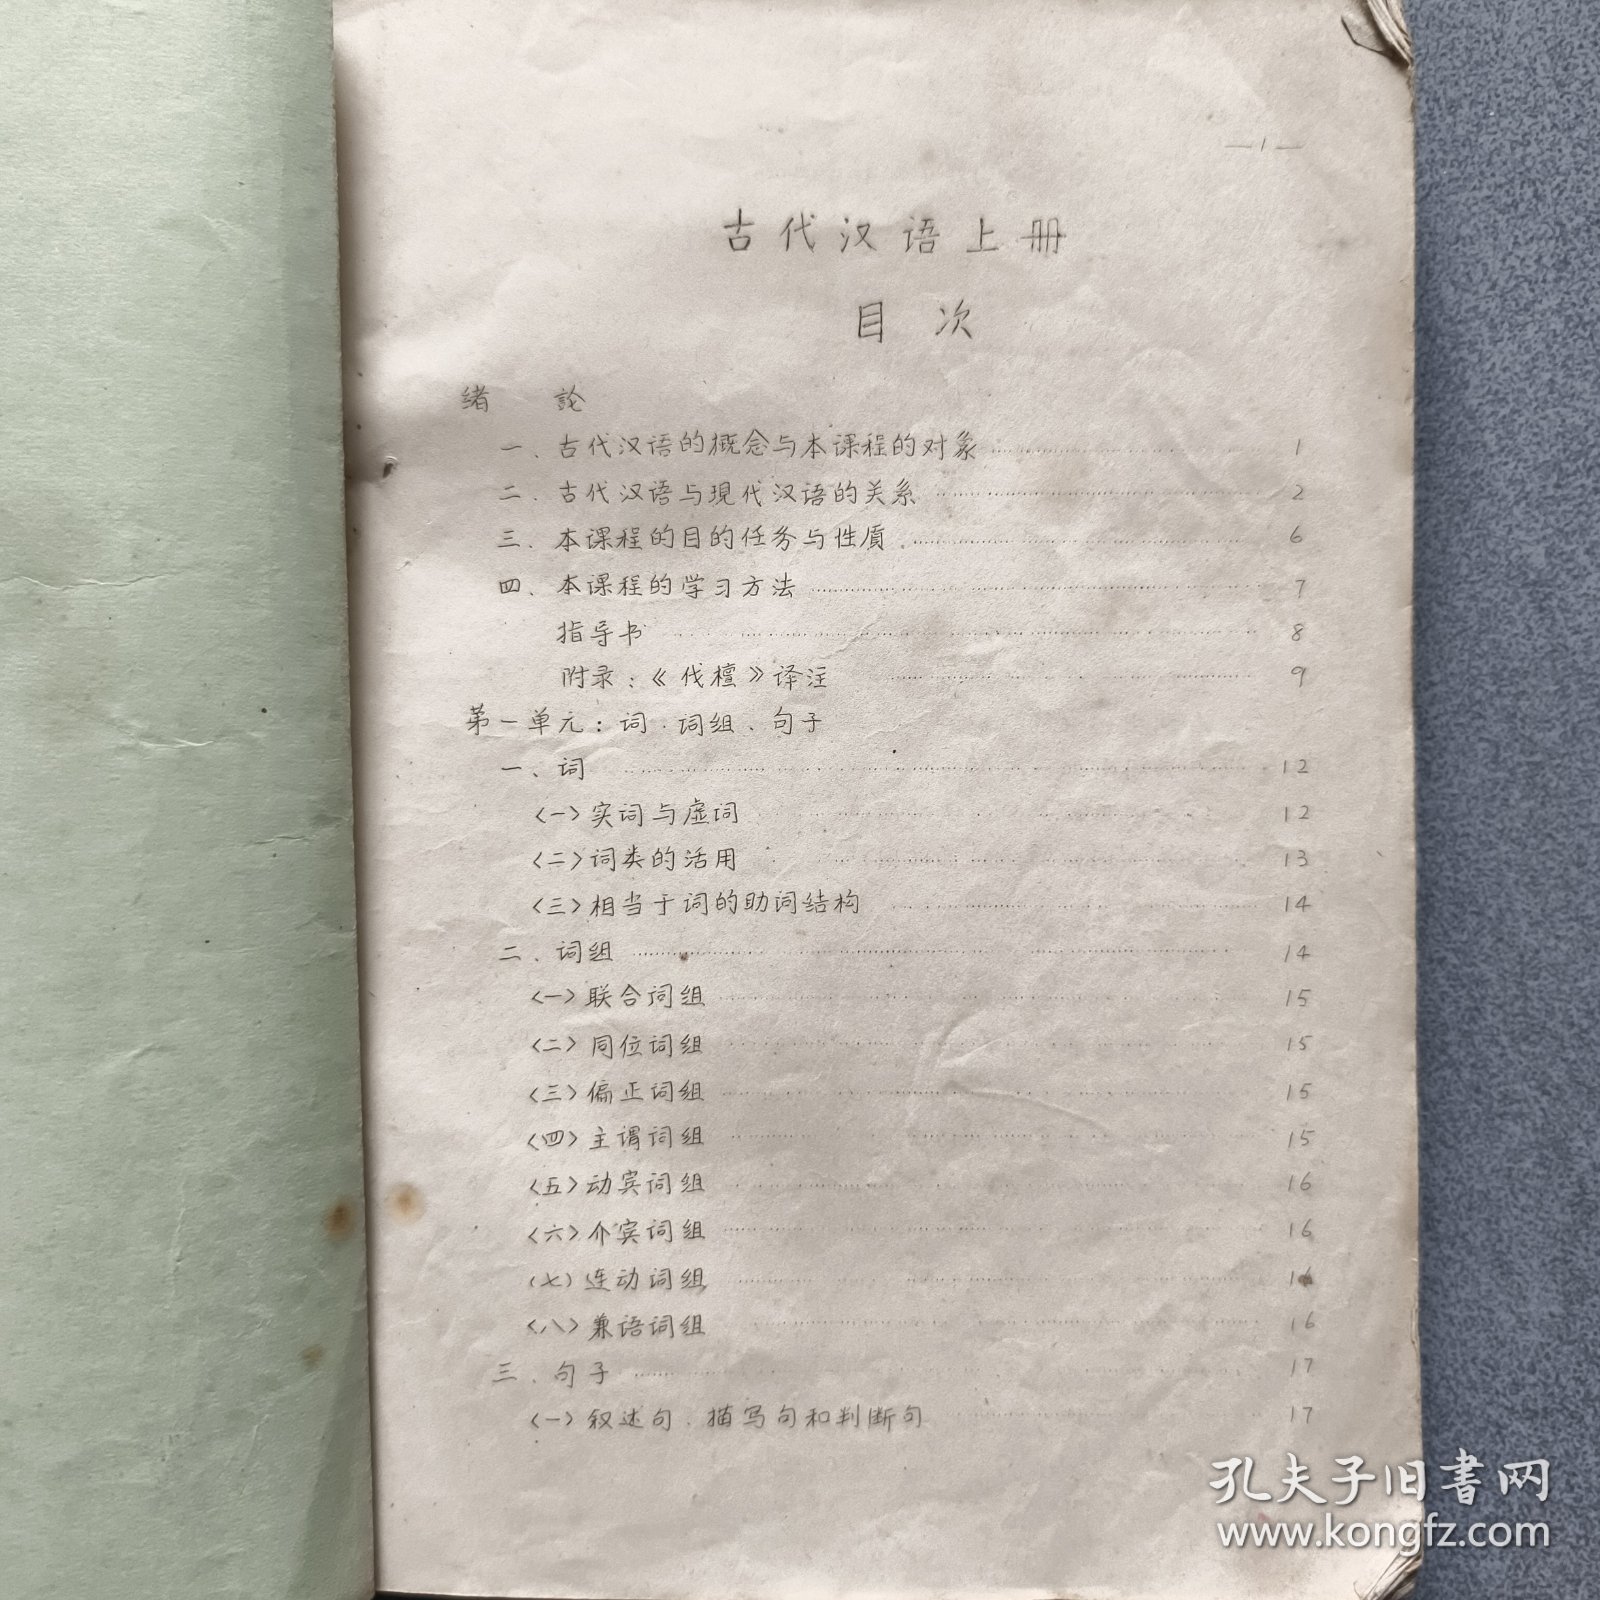 —1—
古代汉语上册
目次
绪 論
一、古代汉语的概念与本课程的对象 1
二、古代汉语与現代汉语的关系 2
三、本课程的目的任务与性质 6
四、本课程的学习方法 7
指导书 8
附录:《伐檀》译注 9
第一单元:词、词组、句子
一、词 12
〈一〉实词与虚词 12
〈二〉词类的活用 13
〈三〉相当于词的助词结构 14
二、词组 14
〈一〉联合词组 15
〈二〉同位词组 15
〈三〉偏正词组 15
〈四〉主谓词组 15
〈五〉动宾词组 16
〈六〉介宾词组 16
〈七〉连动词组 16
〈八〉兼语词组 16
三、句子 17
〈一〉叙述句、描写句和判断句 17
孔夫子旧書网
www.kongfz.com